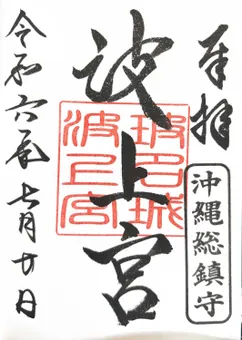 奉拝
沖縄総鎮守
波上宮
波上宮
令和六年七月廿日